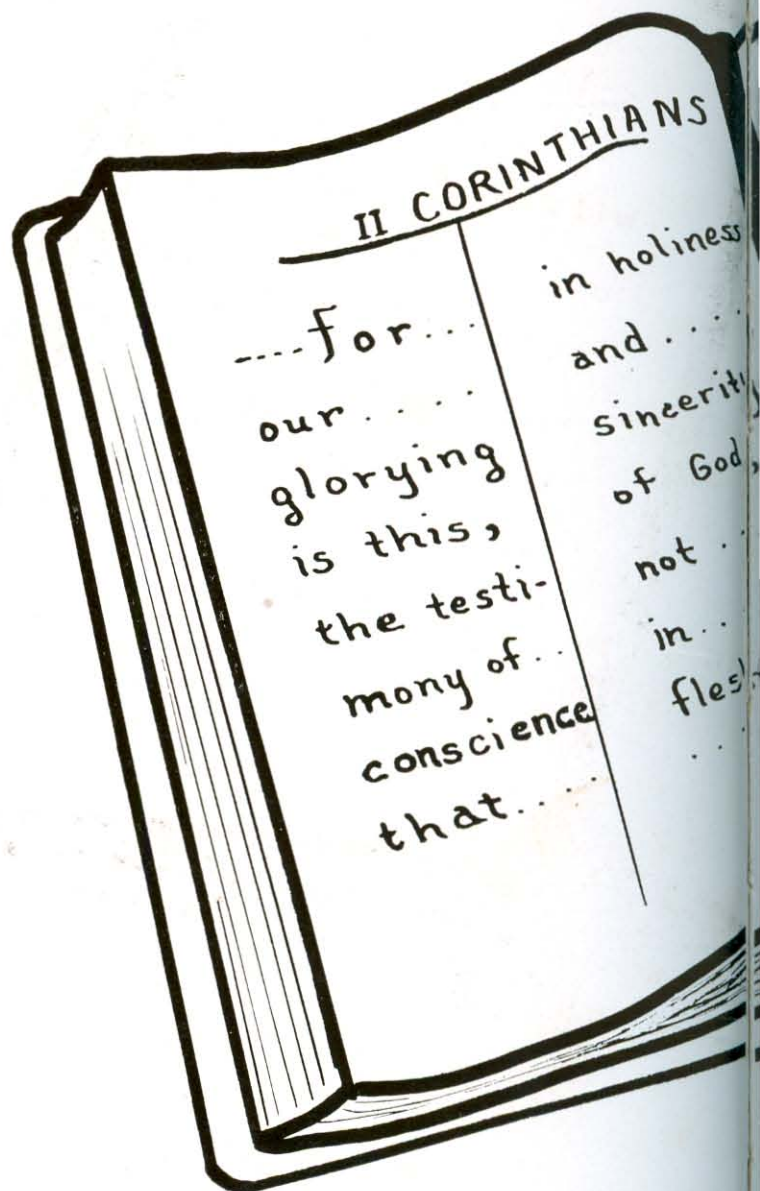 II CORINTHIANS
....for...
our....
glorying
is this,
the testi-
mony of..
conscience
that....
in holiness
and....
sincerity
of God,
not..
in..
flesh
...